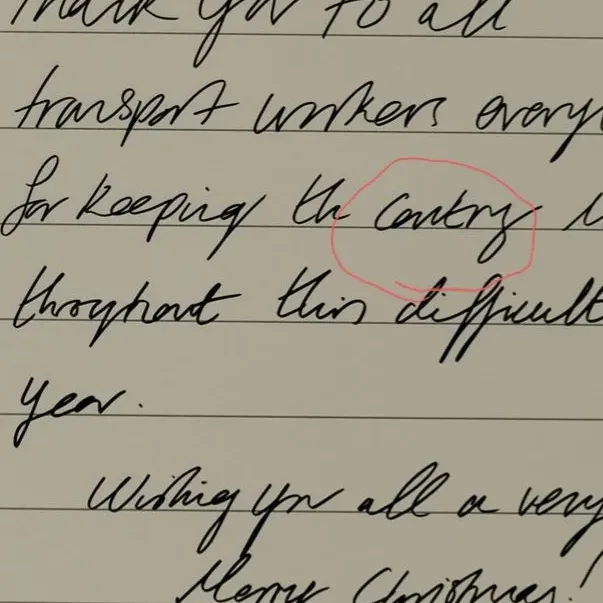 Thank you to all
transport workers every
for keeping the country
throughout this difficult
year.
Wishing you all a very
Merry Christmas!